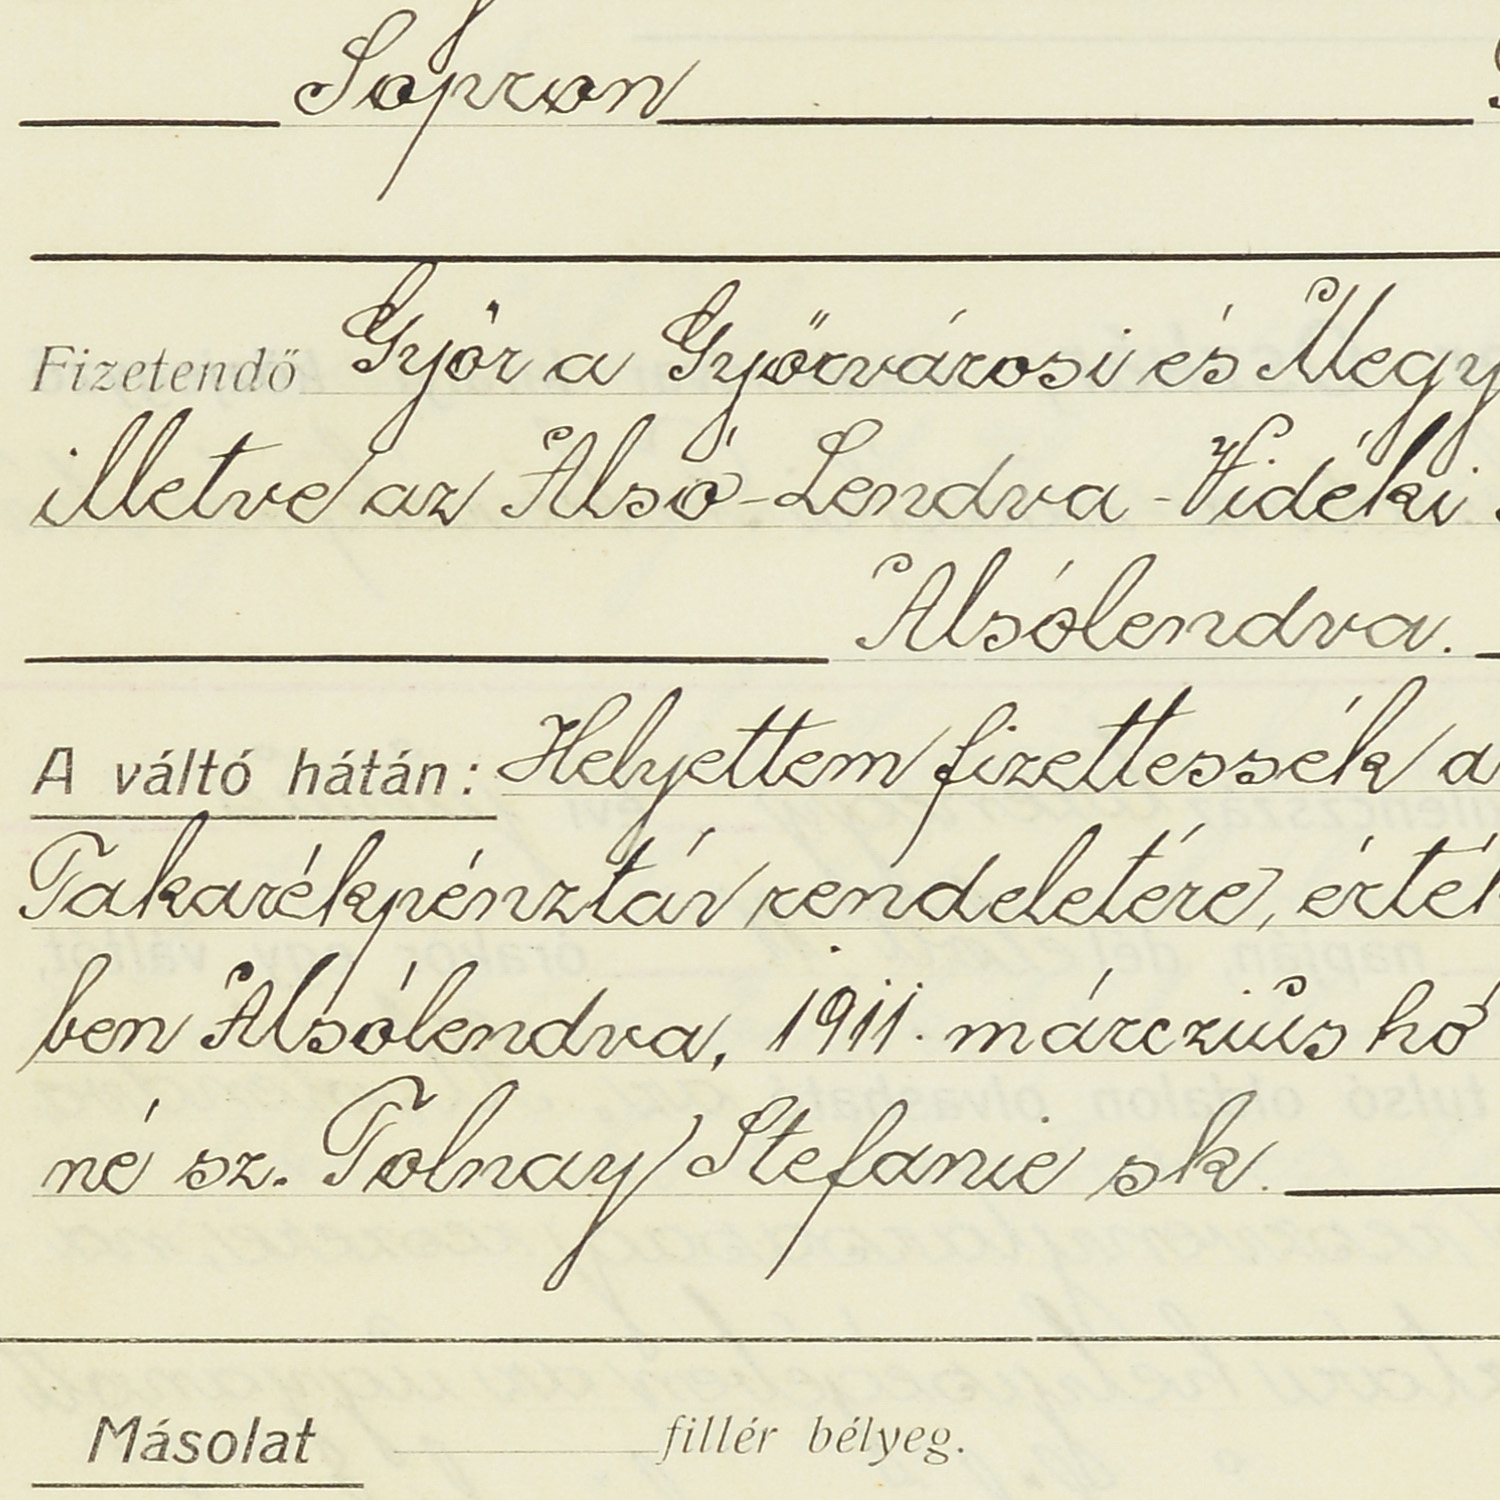 Sopron
Fizetendő Győr a Győrvárosi és Megy
illetve az Alsó-Lendva-Vidéki
Alsólendva.
A váltó hátán: Helyettem fizettessék a
Takarékpénztár rendeletére, érték
ben Alsólendva, 1911. márczius hó
né sz. Tolnay Stefanie sk.
Másolat fillér bélyeg.